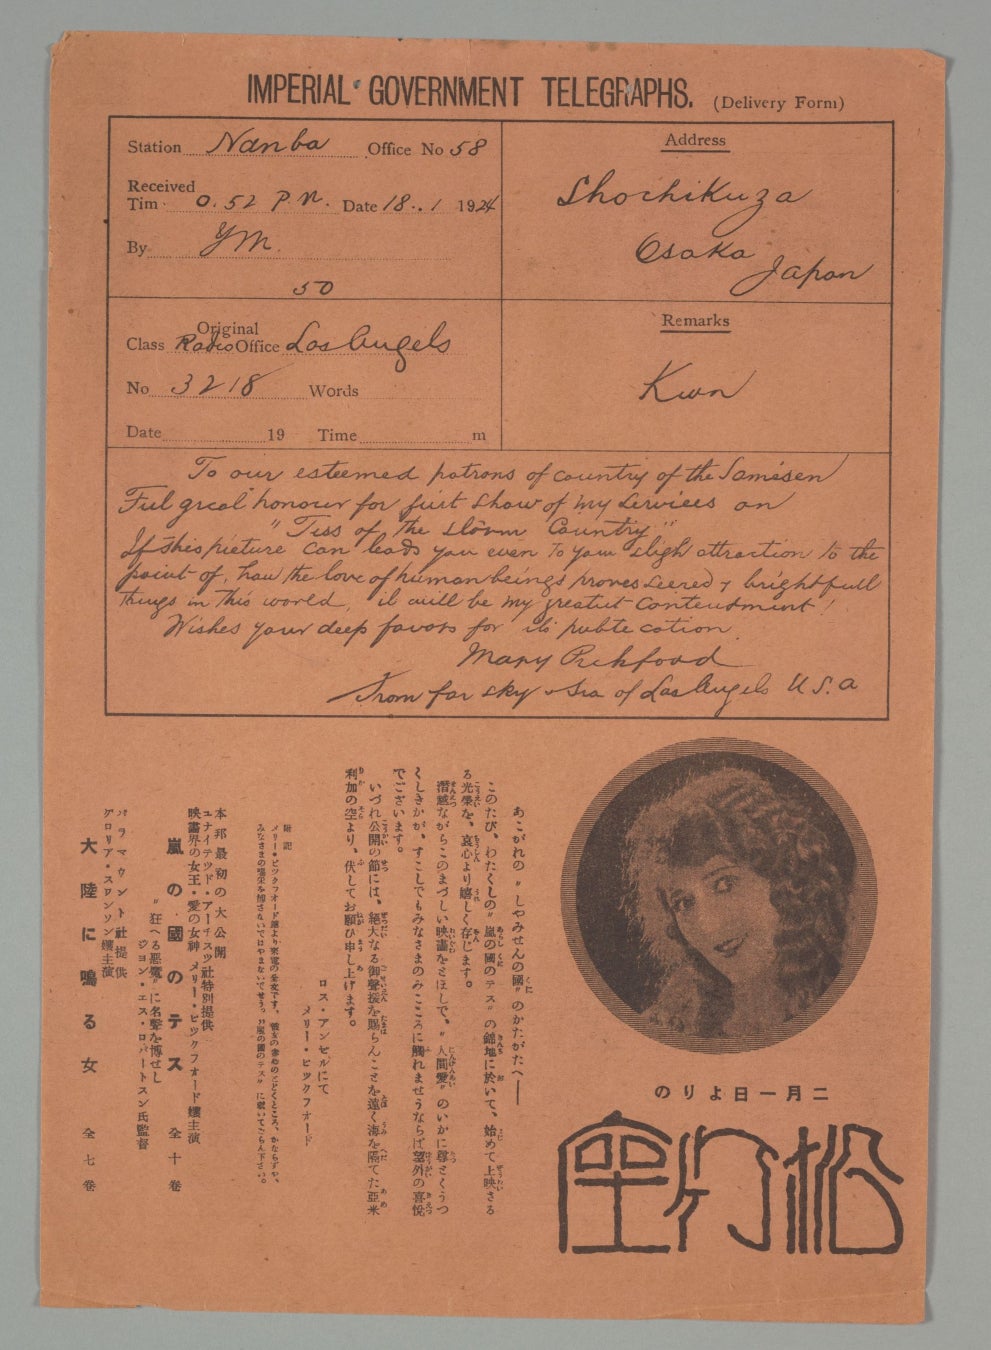 IMPERIAL GOVERNMENT TELEGRAPHS. (Delivery Form)
Station Nanba Office No 58
Received
Tim 0.52 P.M. Date 18..1 1924
By YM.
50
Address
Shochikuza
Osaka
Japan
Original
Class Radio Office Los Angels
No 3218 Words
Date 19 Time m
Remarks
Kwn
To our esteemed patrons of country of the Samisen
Ful great honour for first show of my services on
"Tess of the storm Country"
If this picture can leads you even to your sligh attraction to the
point of, how the love of human beings proves & bright full
things in this world, it will be my greatest contentment!
Wishes your deep favors for its publication.
Mary Pickford
From far sky & Sea of Los Angels U.S.A
あこがれの〝しやみせんの國〟のかたがたへ――
このたび、わたくしの〝嵐の國のテス〟の錦地に於いて、始めて上映さる
る光榮を、衷心より嬉しく存じます。
潜越ながらこのまづしい映畫をとほして、〝人間愛〟のいかに尊とくうつ
くしきかが、すこしでもみなさまのみこころに觸れませうならば望外の喜悅
でございます。
いづれ公開の節には、絕大なる御聲援を賜らんことを遠く海を隔てた亞米
利加の空より、伏してお願ひ申し上げます。
ロス・アンゼルにて
メリー・ピツクフオード
附記
メリー・ピツクフオード孃より來電の全文です。彼女の希めのごとくところ、かならずや、
みなさまの喝采を博さないではやまないでせう。〝嵐の國のテス〟に就いてごらん下さい。
本邦最初の大公開
ユナイテツド・アーチスツ社特別提供
映畫界の女王・愛の女神 メリー・ピツクフオード孃主演
嵐の國のテス 全十卷
〝狂へる惡魔〟に名聲を博せし
ジヨン・エス・ロバートスン氏監督
パラマウント社提供
グロリア・スワンソン孃主演
大陸に鳴る女 全七卷
二月一日よりの
松竹座